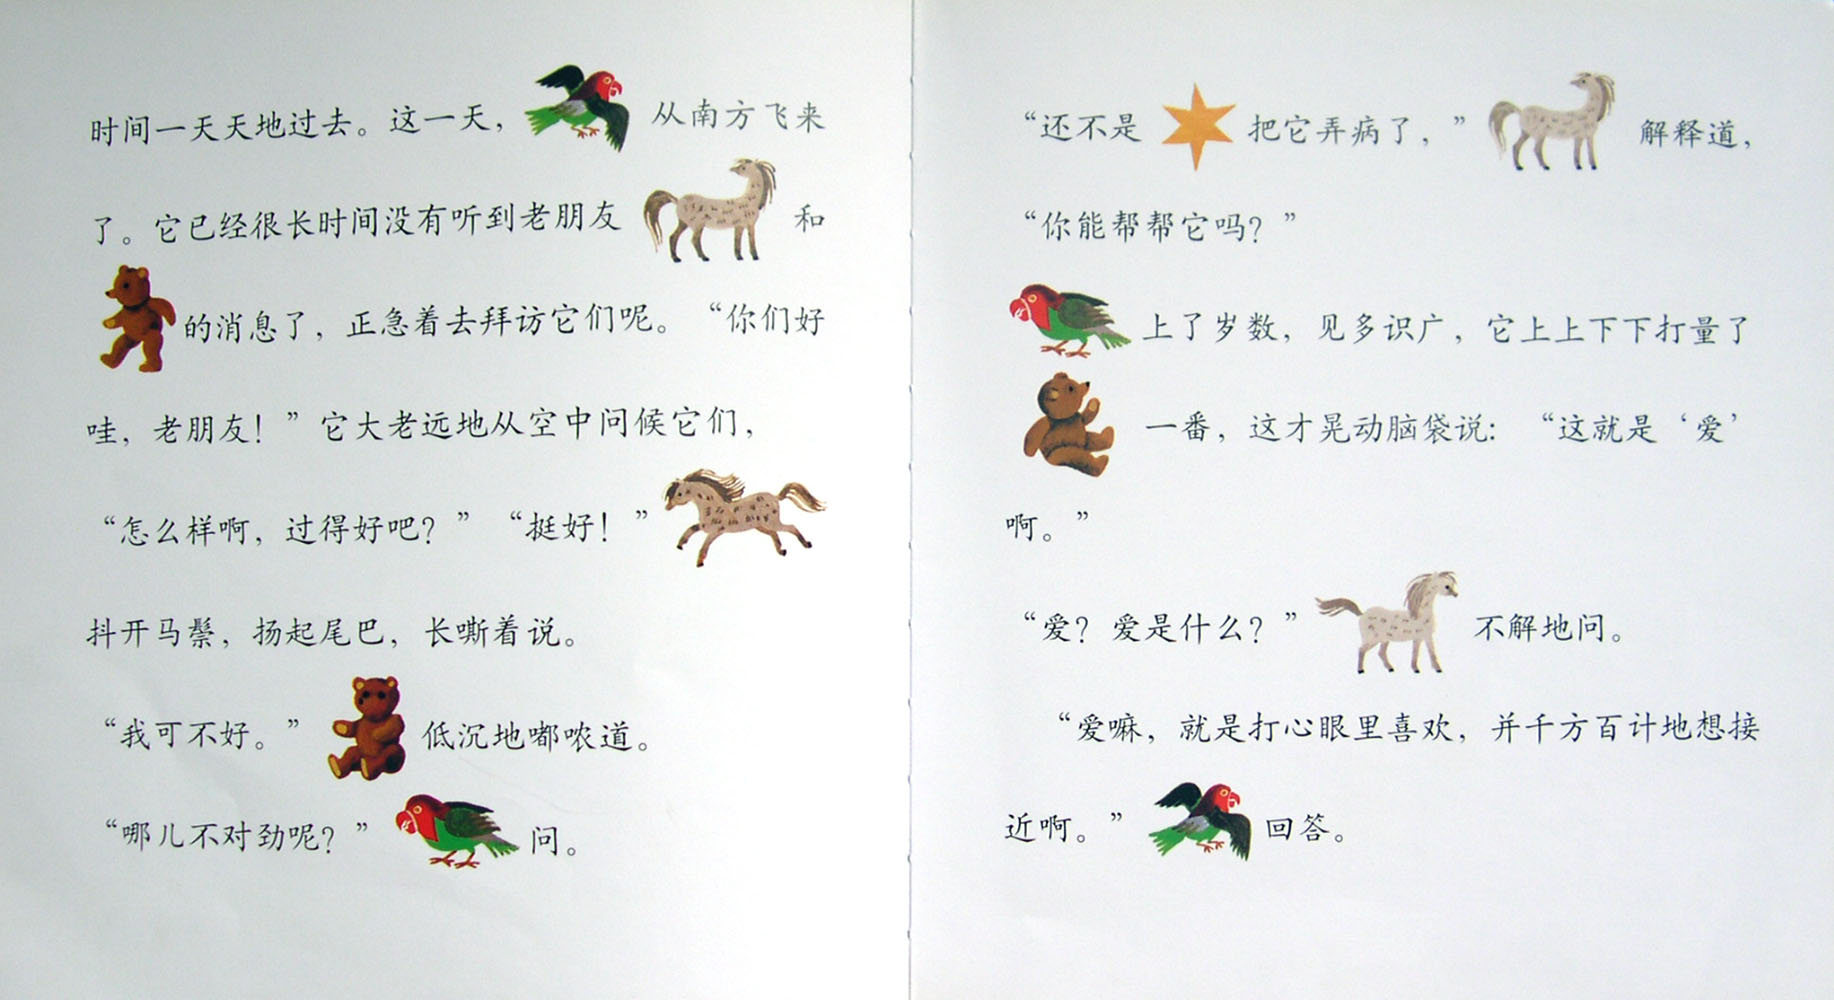 时间一天天地过去。这一天，从南方飞来
了。它已经很长时间没有听到老朋友和
的消息了，正急着去拜访它们呢。“你们好
哇，老朋友！”它大老远地从空中问候它们，
“怎么样啊，过得好吧？”“挺好！”
抖开马鬃，扬起尾巴，长嘶着说。
“我可不好。”低沉地嘟哝道。
“哪儿不对劲呢？”问。
“还不是把它弄病了，”解释道，
“你能帮帮它吗？”
上了岁数，见多识广，它上上下下打量了
一番，这才晃动脑袋说：“这就是‘爱’
啊。”
“爱？爱是什么？”不解地问。
“爱嘛，就是打心眼里喜欢，并千方百计地想接
近啊。”回答。